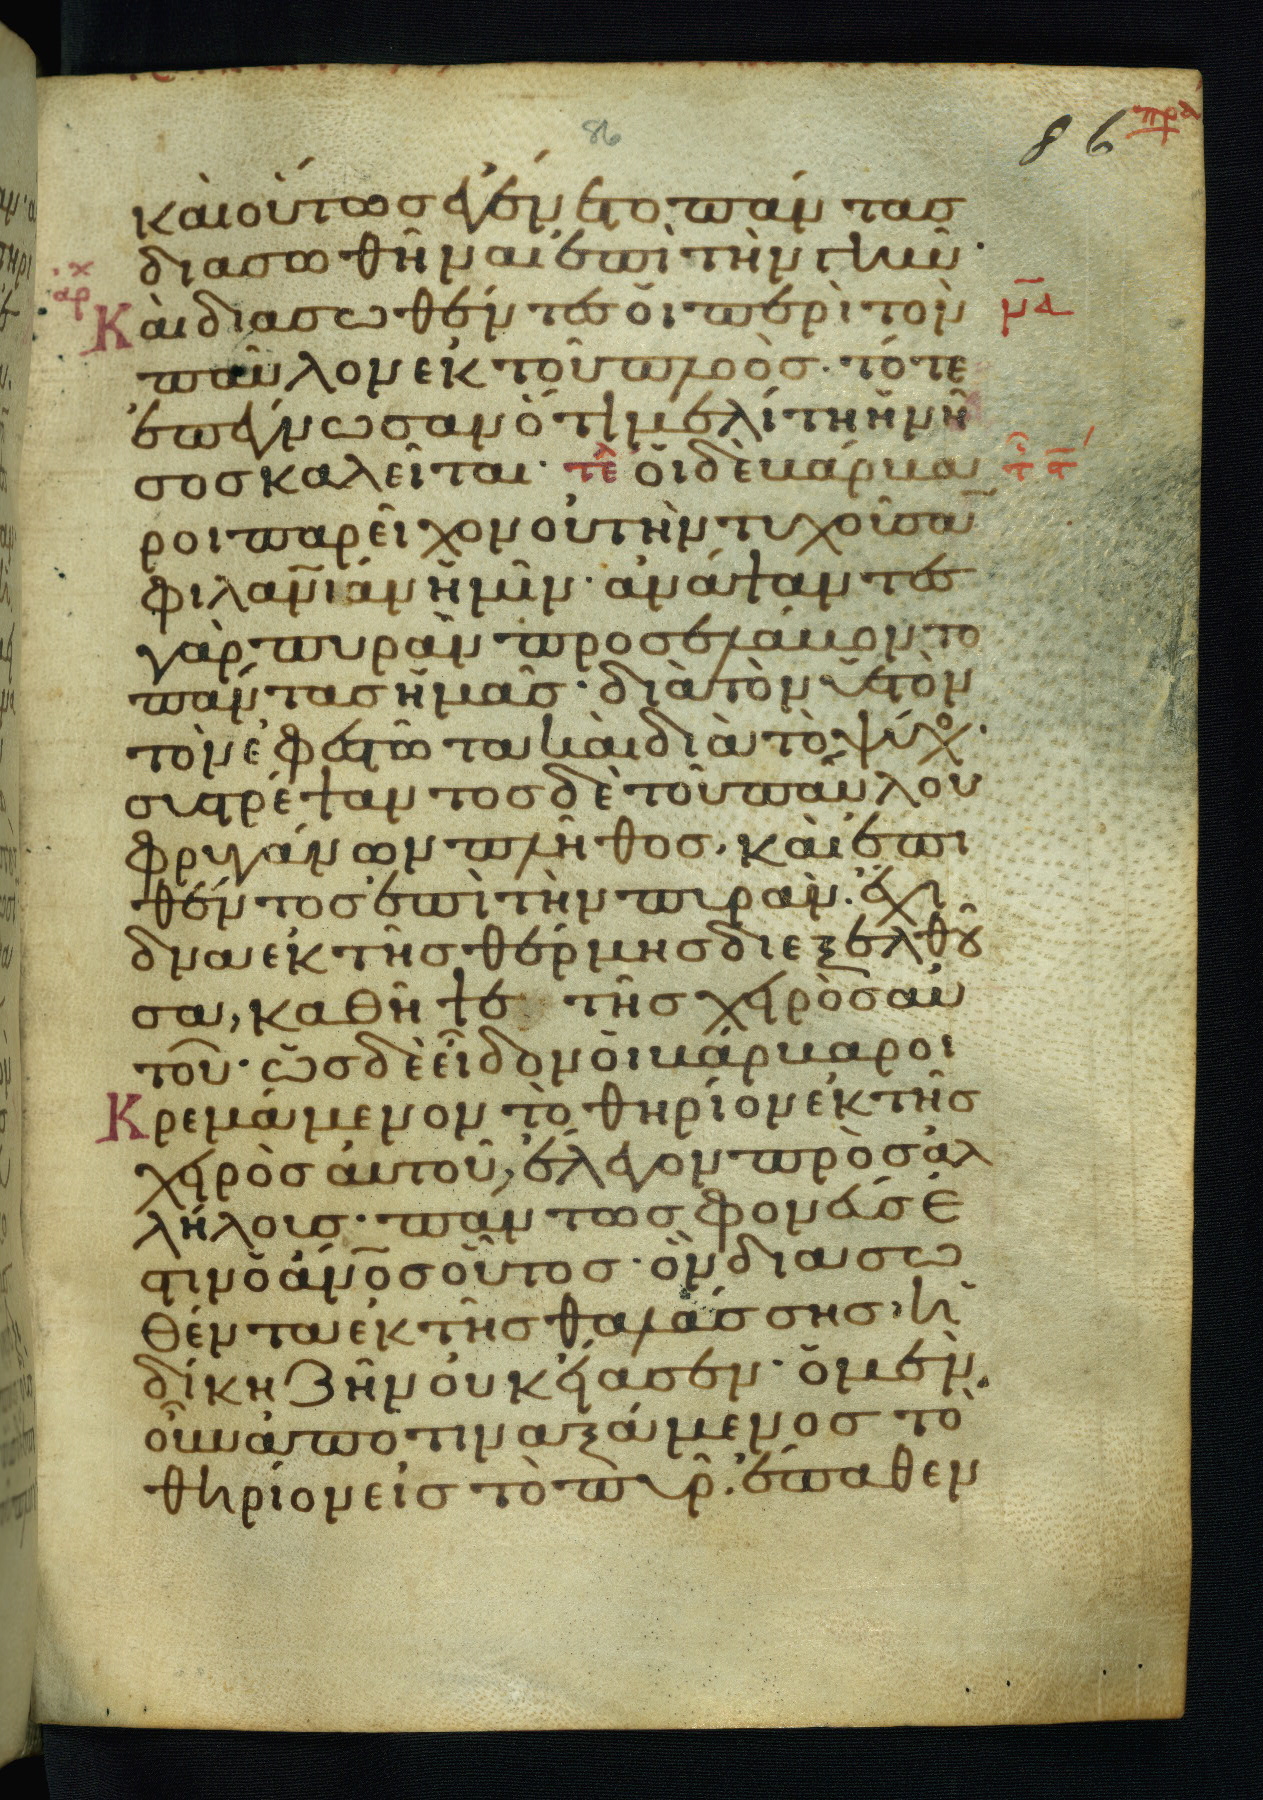 86
86 πρα
καὶ οὕτως ἐγένετο πάντας
διασωθῆναι ἐπὶ τὴν γῆν·
αρχ
Καὶ διασωθέντες οἱ περὶ τὸν μα
παῦλον ἐκ τοῦ πλοὸς· τότε
ἐπέγνωσαν ὅτι μελίτη ἡ νῆ
σος καλεῖται· τε οἱ δὲ βάρβα
ροι παρεῖχον οὐ τὴν τυχοῦσα
φιλανιαν ἡμῖν· ἀνάψαντες
γὰρ πυρὰν προσελάβοντο
πάντας ἡμᾶς· διὰ τὸν ὑετὸν
τὸν ἐφεστῶτα καὶ διὰ τὸ ψύχο·
συστρέψαντος δὲ τοῦ παύλου
φρυγάνων πλῆθος, καὶ ἐπι
θέντος ἐπὶ τὴν πυρὰν· ἔχι
δνα ἐκ τῆς θέρμης διεξελθοῦ
σα, καθῆψε τῆς χειρὸς αὐ
τοῦ· ὡς δὲ εἶδον οἱ βάρβαροι
Κρεμάμενον τὸ θηρίον ἐκ τῆς
χειρὸς αὐτοῦ, ἔλεγον πρὸς ἀλ
λήλους· πάντως φονεύς ἐ
στιν ὁ ἄνος οὗτος· ὃν διασω
θέντα ἐκ τῆς θαλάσσης, ἡ
δίκη ζῆν οὐκ εἴασεν· ὁ μὲν
οὖν ἀποτιναξάμενος τὸ
θηρίον εἰς τὸ πῦρ· ἔπαθεν